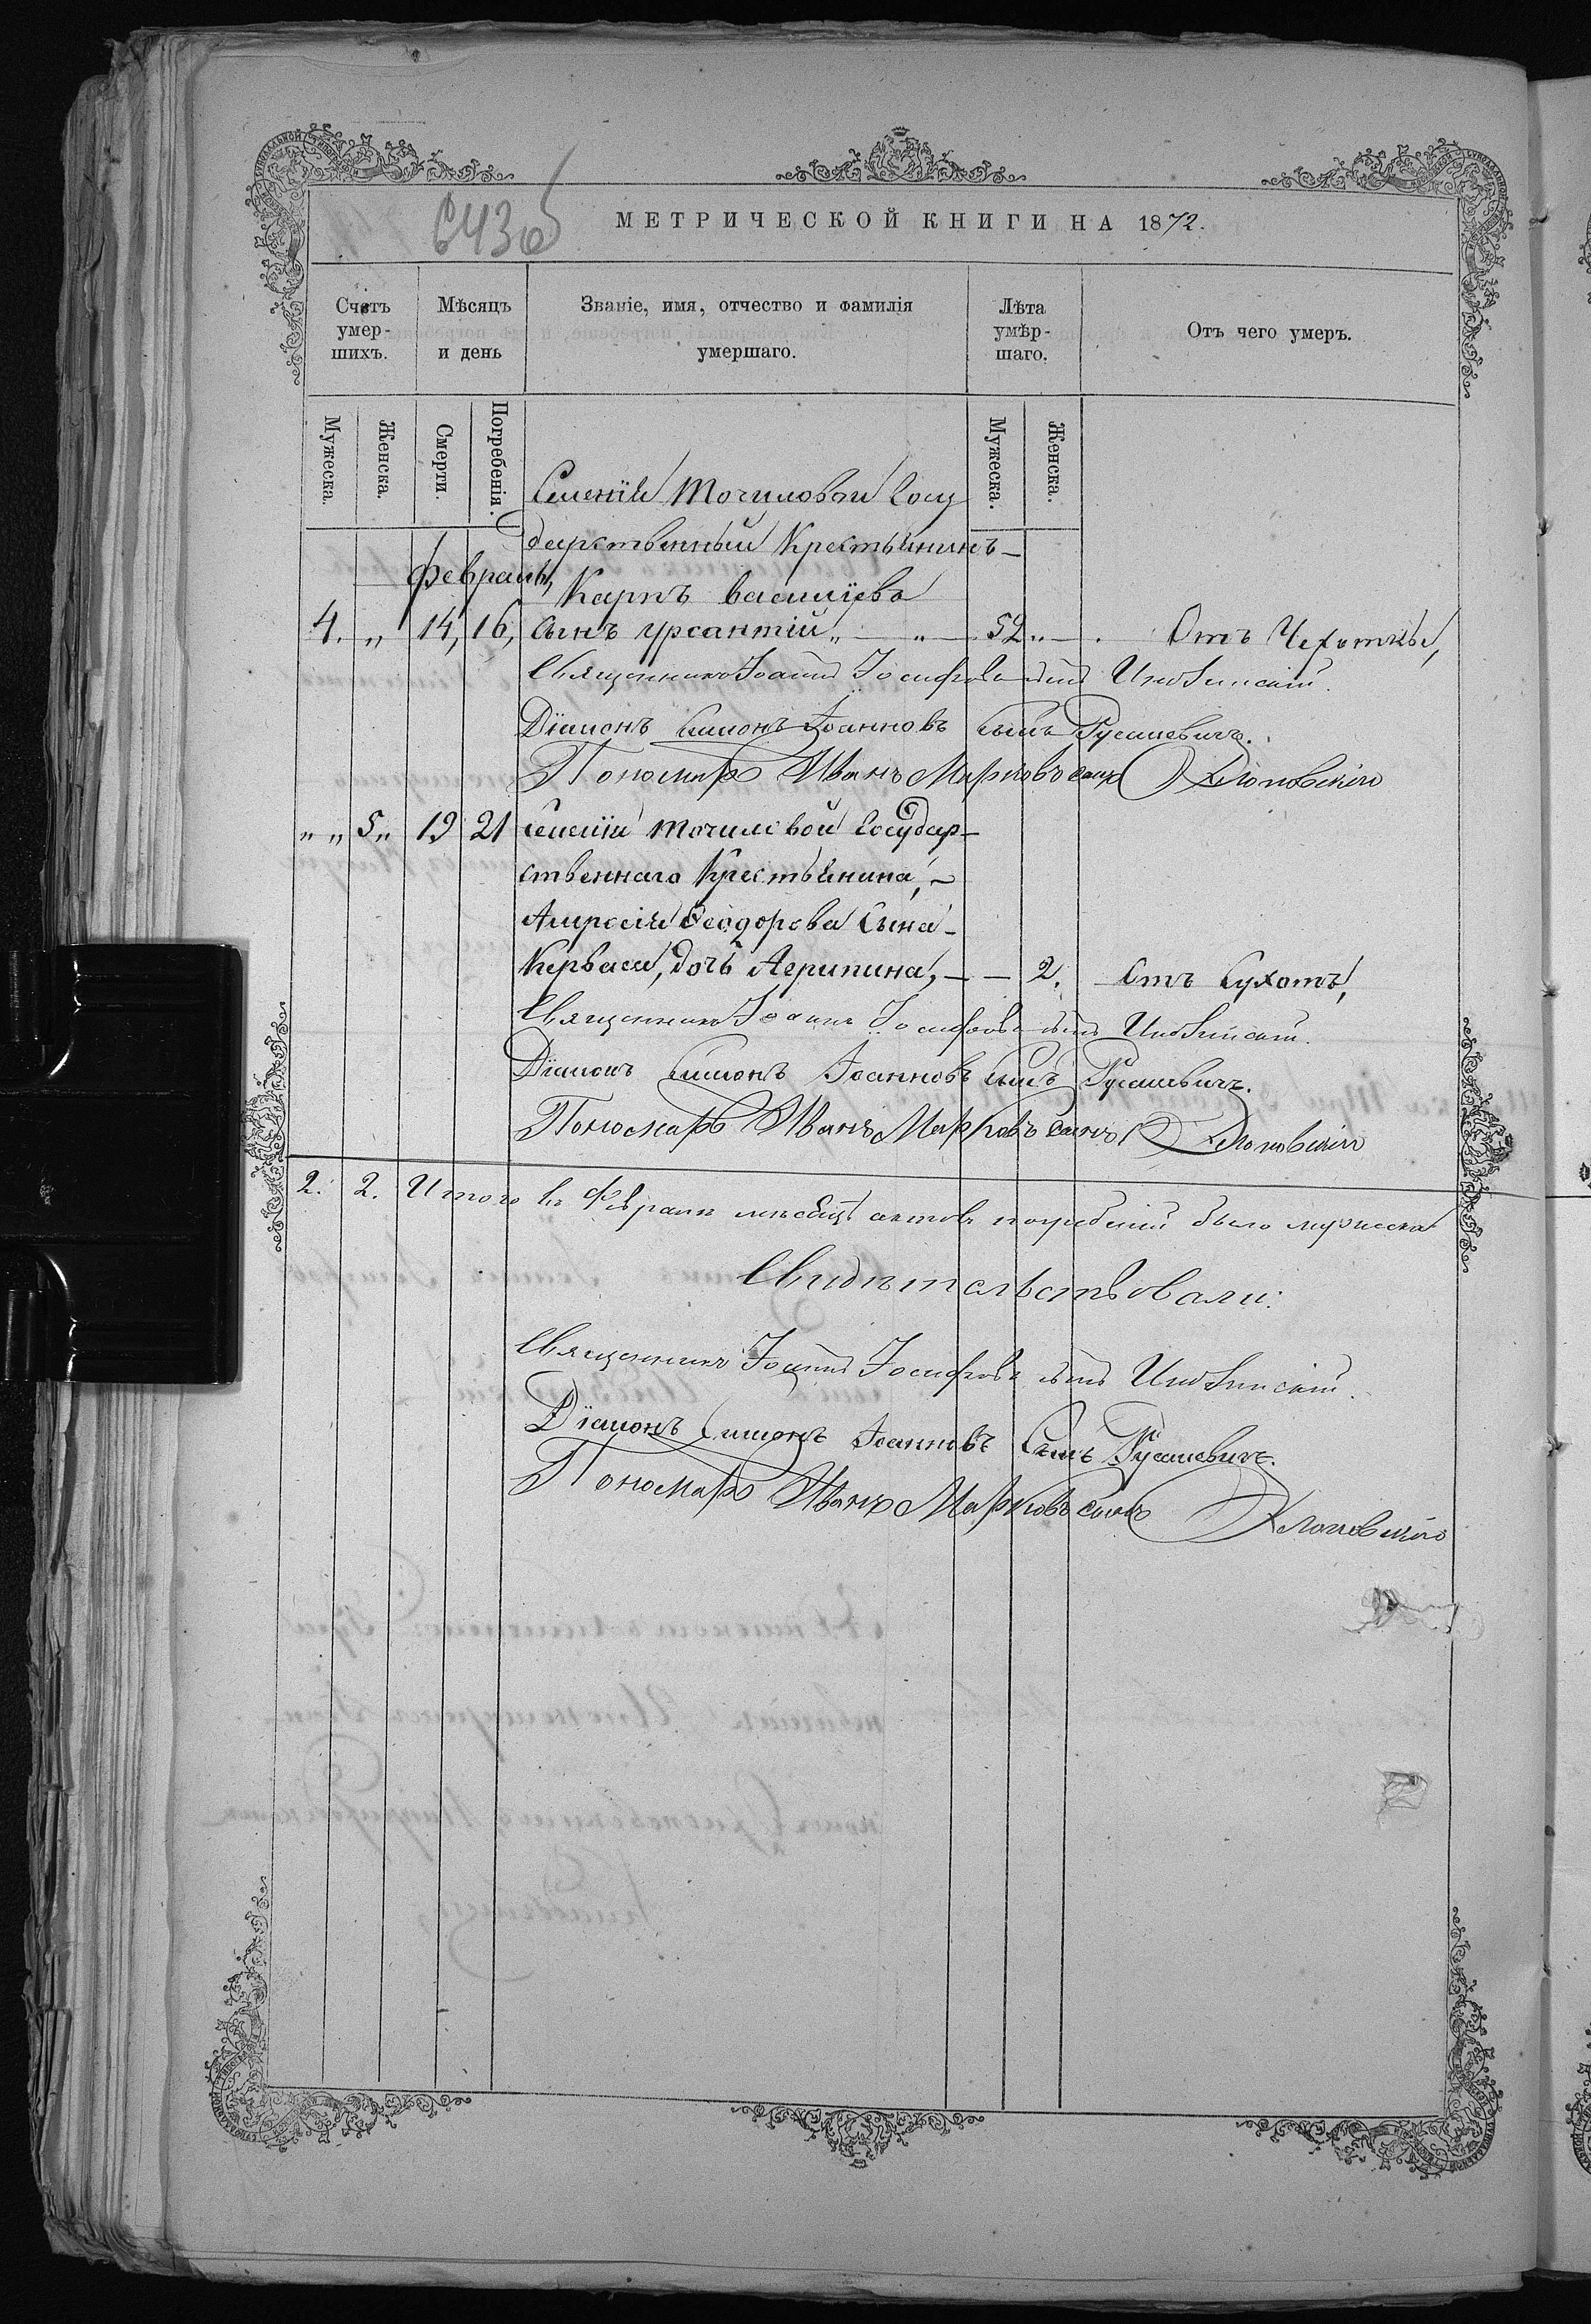 643об
МЕТРИЧЕСКОЙ КНИГИ НА 1872.
Счетъ умер-шихъ.
Мѣсяцъ и день
Званіе, имя, отчество и фамилія умершаго.
Лѣта умѣр-шаго.
Отъ чего умеръ.
Мужеска.
Женска.
Смерти.
Погребенія.
Мужеска.
Женска.
Селенія Точиловой Госу
дарственный Крестьянинъ-
Февраль,
Карпъ Василіева
4. „ 14, 16, сынъ Урсантій „ — „ — 52 „ — . Отъ Чехотки,
Священникъ Іоаннъ Іосифовъ сынъ
Діаконъ Симонъ Іоанновъ сынъ Русалевичъ.
Пономарь Иванъ Марковъ сынъ
„ „ 5 „ 19 21 Селенія Точиловой Государ-
ственнаго Крестьянина, ~
Амросія Ѳеодорова Сына -
Керваси, дочь Агрипина, — — 2. Отъ Сухотъ,
Священникъ Іоаннъ Іосифовъ сынъ
Діаконъ Симонъ Іоанновъ сынъ Русалевичъ.
Пономарь Иванъ Марковъ сынъ
2. 2. Итого въ Февралѣ мѣсяцѣ актовъ погребеній было мужеска
Свидѣтельствовали:
Священникъ Іоаннъ Іосифовъ сынъ
Діаконъ Симонъ Іоанновъ Сынъ Русалевичъ.
Пономарь Иванъ Марковъ сынъ